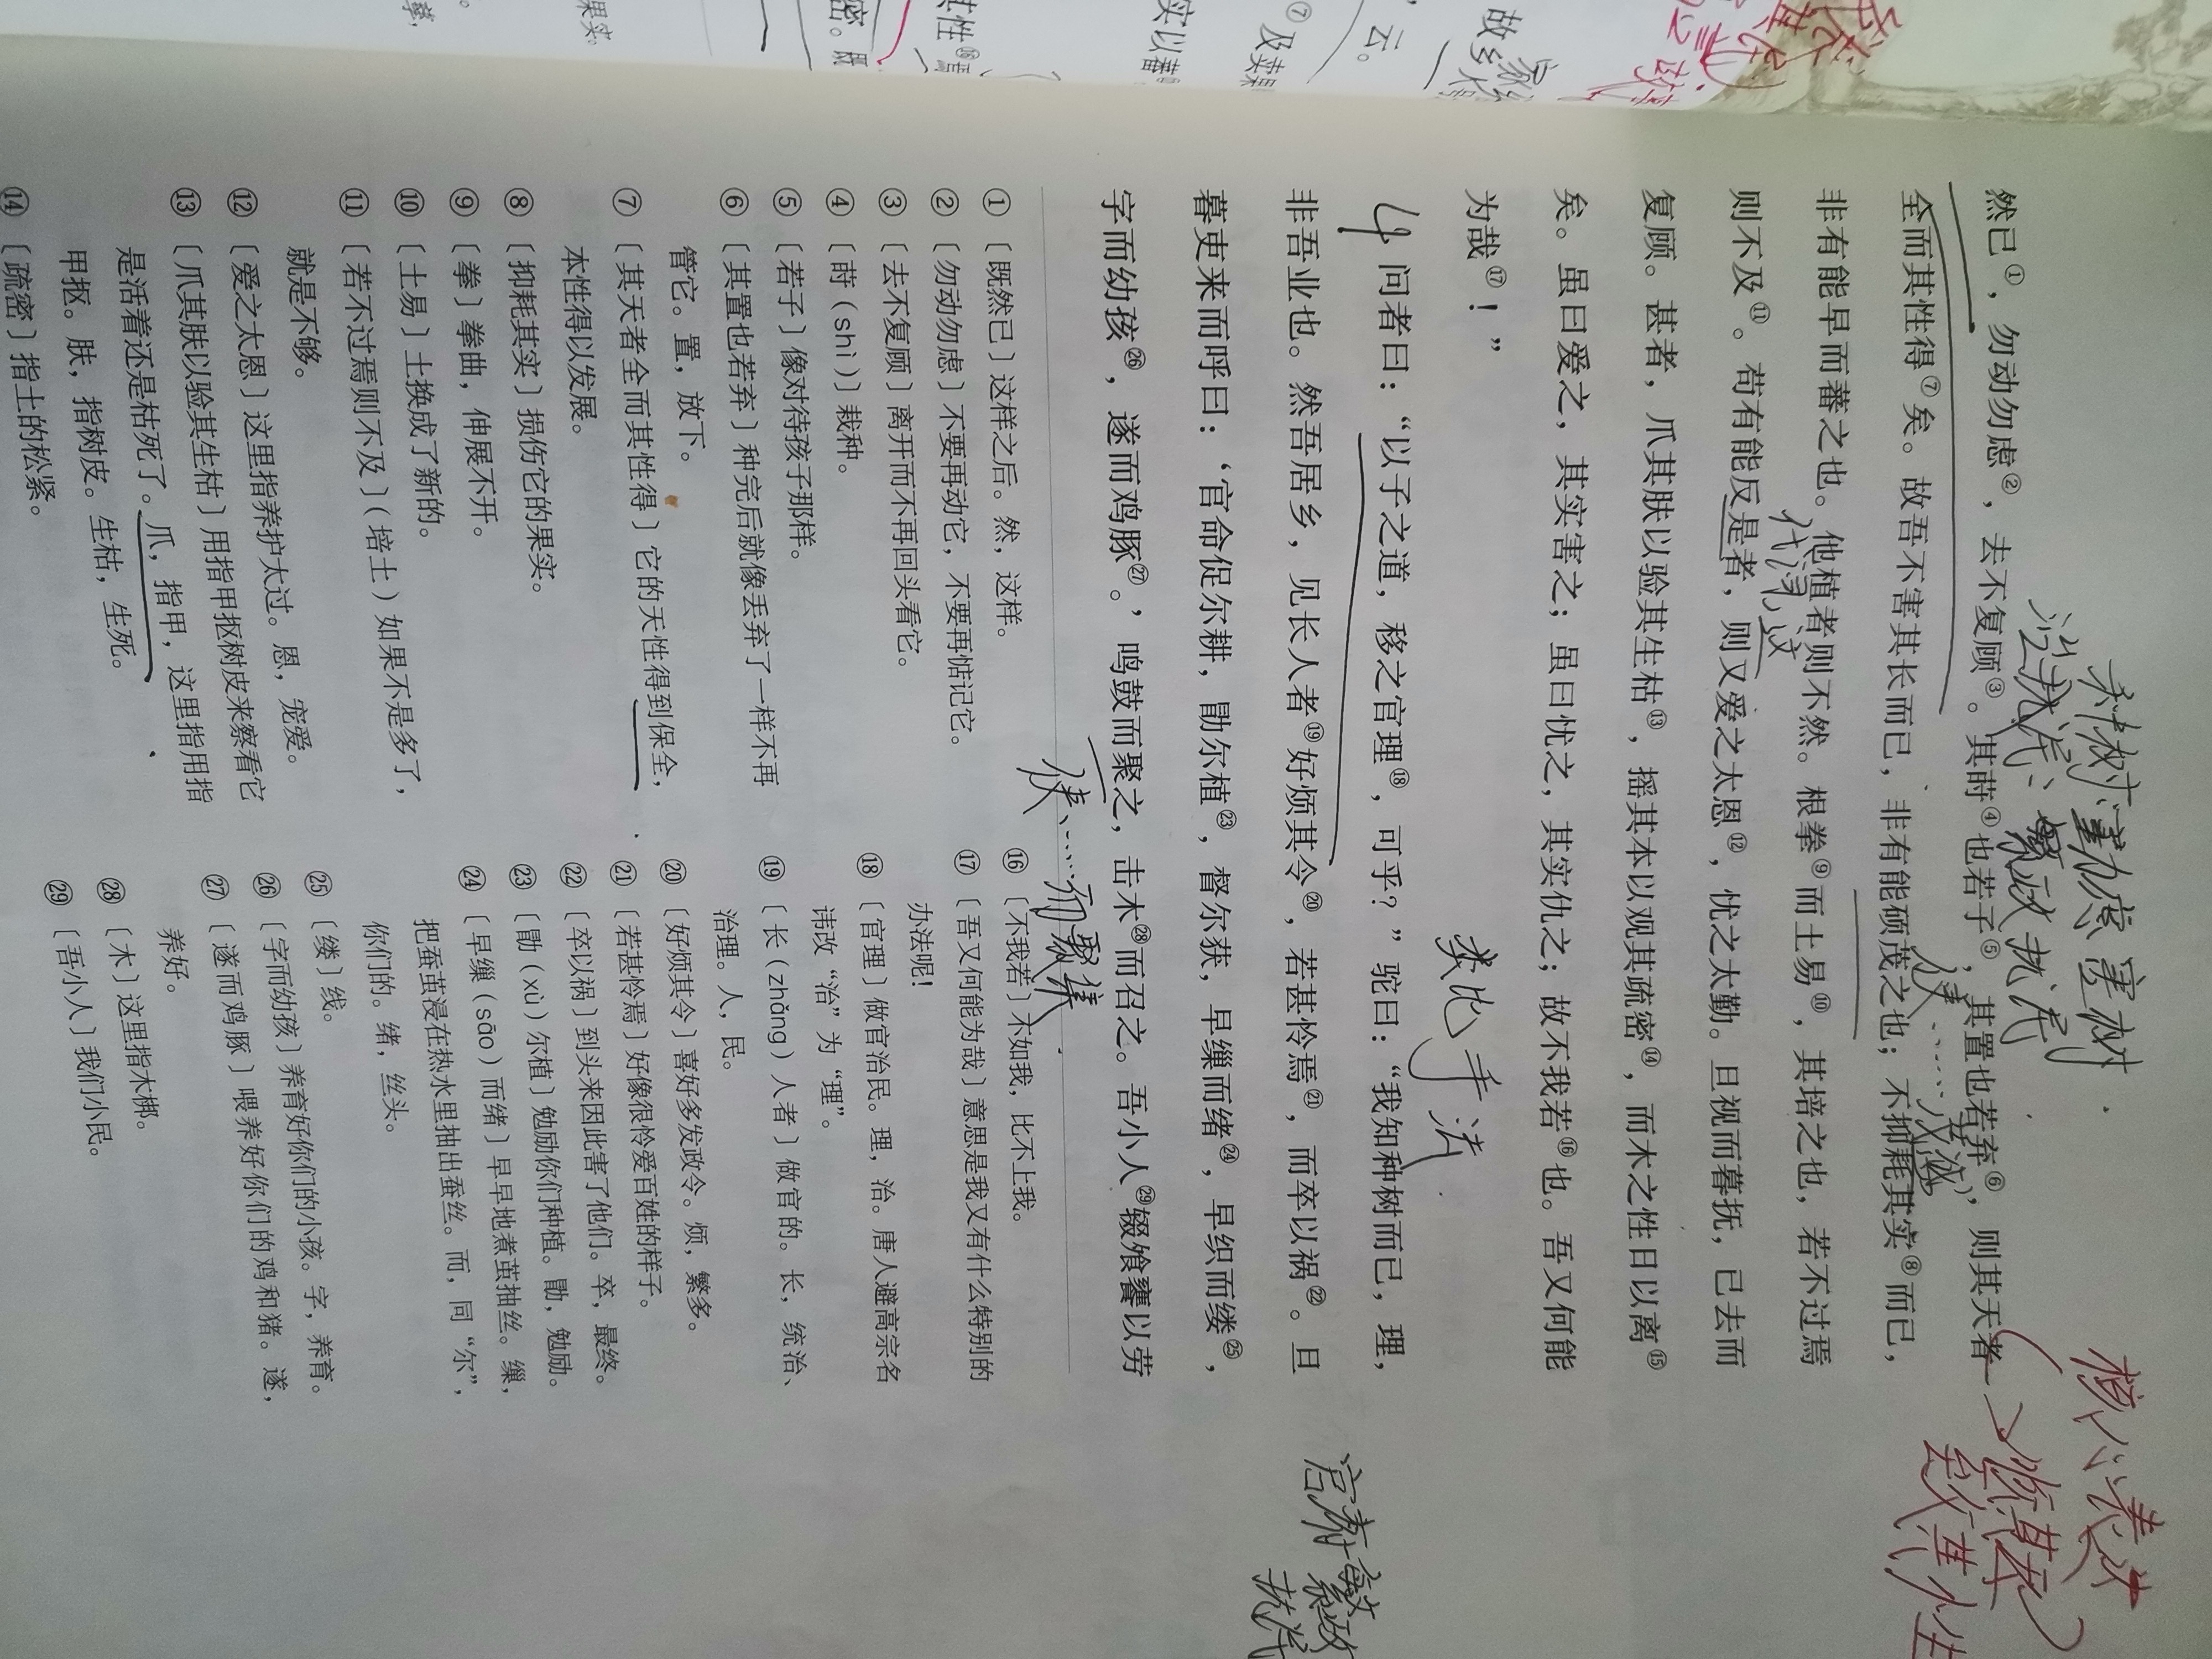 然已①，勿动勿虑②，去不复顾③。其莳④也若子⑤，其置也若弃⑥，则其天者
全而其性得⑦矣。故吾不害其长而已，非有能硕茂之也；不抑耗其实⑧而已，
非有能早而蕃之也。他植者则不然。根拳⑨而土易⑩，其培之也，若不过焉
则不及⑪。苟有能反是者，则又爱之太恩⑫，忧之太勤。旦视而暮抚，已去而
复顾。甚者，爪其肤以验其生枯⑬，摇其本以观其疏密⑭，而木之性日以离⑮
矣。虽曰爱之，其实害之；虽曰忧之，其实仇之；故不我若⑯也。吾又何能
为哉⑰！”
类比手法
4
问者曰：“以子之道，移之官理⑱，可乎？”驼曰：“我知种树而已，理，
非吾业也。然吾居乡，见长人者⑲好烦其令⑳，若甚怜焉㉑，而卒以祸㉒。旦
暮吏来而呼曰：‘官命促尔耕，勖尔植㉓，督尔获，早缫而绪㉔，早织而缕㉕，
字而幼孩㉖，遂而鸡豚㉗。’鸣鼓而聚之，击木㉘而召之。吾小人㉙辍飧饔以劳
使……而聚集
①〔既然已〕这样之后。然，这样。
②〔勿动勿虑〕不要再动它，不要再惦记它。
③〔去不复顾〕离开而不再回头看它。
④〔莳（shì）〕栽种。
⑤〔若子〕像对待孩子那样。
⑥〔其置也若弃〕种完后就像丢弃了一样不再
管它。置，放下。
⑦〔其天者全而其性得〕它的天性得到保全，
本性得以发展。
⑧〔抑耗其实〕损伤它的果实。
⑨〔拳〕拳曲，伸展不开。
⑩〔土易〕土换成了新的。
⑪〔若不过焉则不及〕（培土）如果不是多了，
就是不够。
⑫〔爱之太恩〕这里指养护太过。恩，宠爱。
⑬〔爪其肤以验其生枯〕用指甲抠树皮来察看它
是活着还是枯死了。爪，指甲，这里指用指
甲抠。肤，指树皮。生枯，生死。
⑭〔疏密〕指土的松紧。
⑯〔不我若〕不如我，比不上我。
⑰〔吾又何能为哉〕意思是我又有什么特别的
办法呢！
⑱〔官理〕做官治民。理，治。唐人避高宗名
讳改“治”为“理”。
⑲〔长（zhǎng）人者〕做官的。长，统治、
治理。人，民。
⑳〔好烦其令〕喜好多发政令。烦，繁多。
㉑〔若甚怜焉〕好像很怜爱百姓的样子。
㉒〔卒以祸〕到头来因此害了他们。卒，最终。
㉓〔勖（xù）尔植〕勉励你们种植。勖，勉励。
㉔〔早缫（sāo）而绪〕早早地煮茧抽丝。缫，
把蚕茧浸在热水里抽出蚕丝。而，同“尔”，
你们的。绪，丝头。
㉕〔缕〕线。
㉖〔字而幼孩〕养育好你们的小孩。字，养育。
㉗〔遂而鸡豚〕喂养好你们的鸡和猪。遂，
养好。
㉘〔木〕这里指木梆。
㉙〔吾小人〕我们小民。